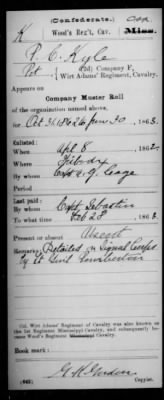 (Confederate.)
K Wood's Reg't, Cav. Miss.
P. C. Kyle
Pvt (2d) Company F,
Wirt Adams' Regiment, Cavalry.
Appears on
Company Muster Roll
of the organization named above,
for Oct 31, 1862 to June 30, 1863.
Enlisted:
When Apl 8, 1862
Where
By whom Capt
Period
Last paid:
By whom Capt. Sebastin
To what time Feb 28, 1863.
Present or absent Absent
Remarks: Detailed in Signal Corps
by Lt Genl Pemberton
Col. Wirt Adams' Regiment of Cavalry was also known as
the 1st Regiment Mississippi Cavalry, and subsequently be-
came Wood's Regiment Mississippi Cavalry.
Book mark:
(642)
Copyist.